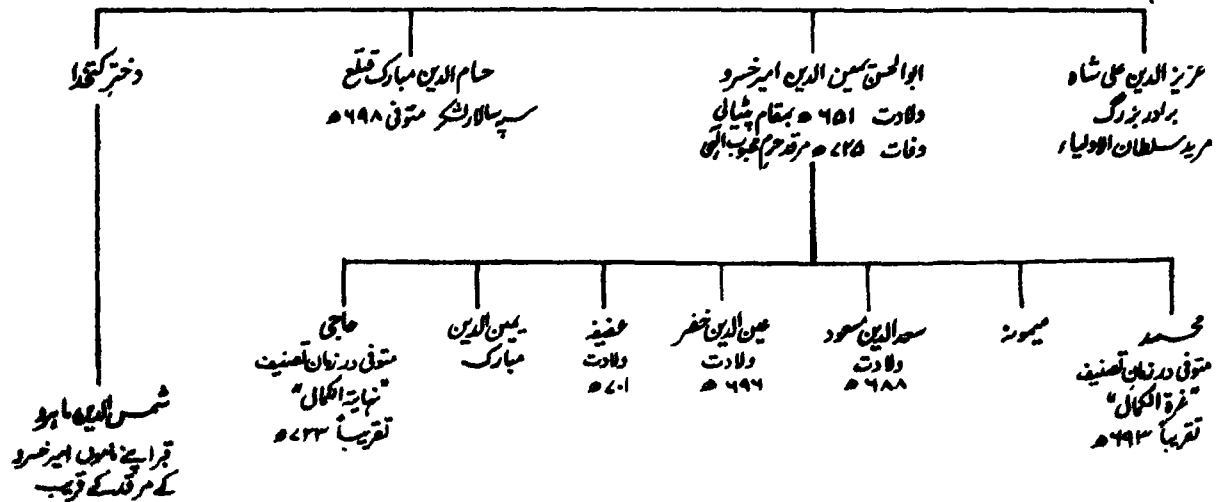 عزیز الدین علی شاہ
برادر بزرگ
مرید سلطان الاولیاء
ابوالحسن یمین الدین امیر خسرو
ولادت ۶۵۱ھ بمقام پٹیالی
وفات ۷۲۵ھ مرقد حرم محبوب الٰہی
حسام الدین مبارک قتلغ
سپہ سالار لشکر متوفی ۶۹۸ھ
دختر کتخدا
محمد
متوفی در زمان تصنیف
"غرۃ الکمال"
تقریباً ۶۹۳ھ
میمونہ
سعد الدین مسعود
ولادت
۶۸۸ھ
عین الدین خضر
ولادت
۶۹۶ھ
عفیفہ
ولادت
۷۰۱ھ
یمین الدین
مبارک
حاجی
متوفی در زمان تصنیف
"نہایۃ الکمال"
تقریباً ۷۲۳ھ
شمس الدین ماہرو
قبر اپنے ماموں امیر خسرو
کے مرقد کے قریب